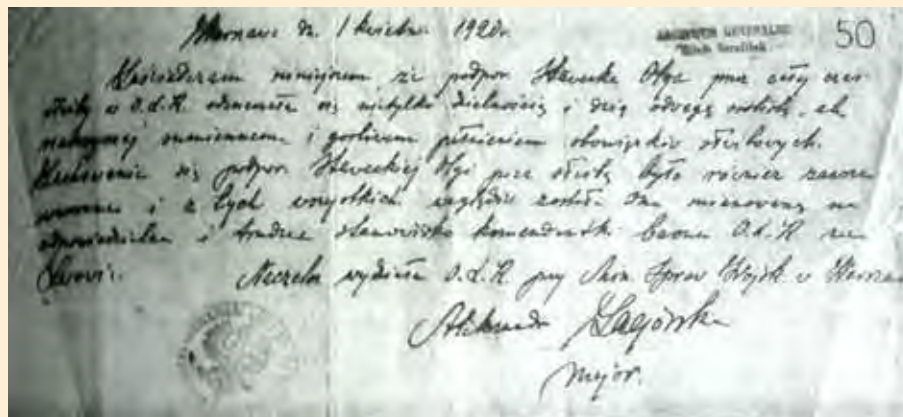 Warszawa dn. 1 kwietnia 1920 r.
50
Zaświadczam niniejszem że podpor. Stawecka Olga przez cały czas
służby w O.L.K. odznaczała się nietylko dzielnością i dużą odwagą osobistą, ale
sumiennem i gorliwem pełnieniem obowiązków służbowych.
Zachowanie się podpor. Staweckiej Olgi przez służbę było również zawsze
i z tych wszystkich względów została ona mianowaną na
odpowiedzialne i trudne stanowisko komendantki baonu O.L.K. we
Lwowie. Naczelna wydziału O.L.K. przy Min. Spraw Wojsk. w Warszaw
Aleksandra Zagórska
major.